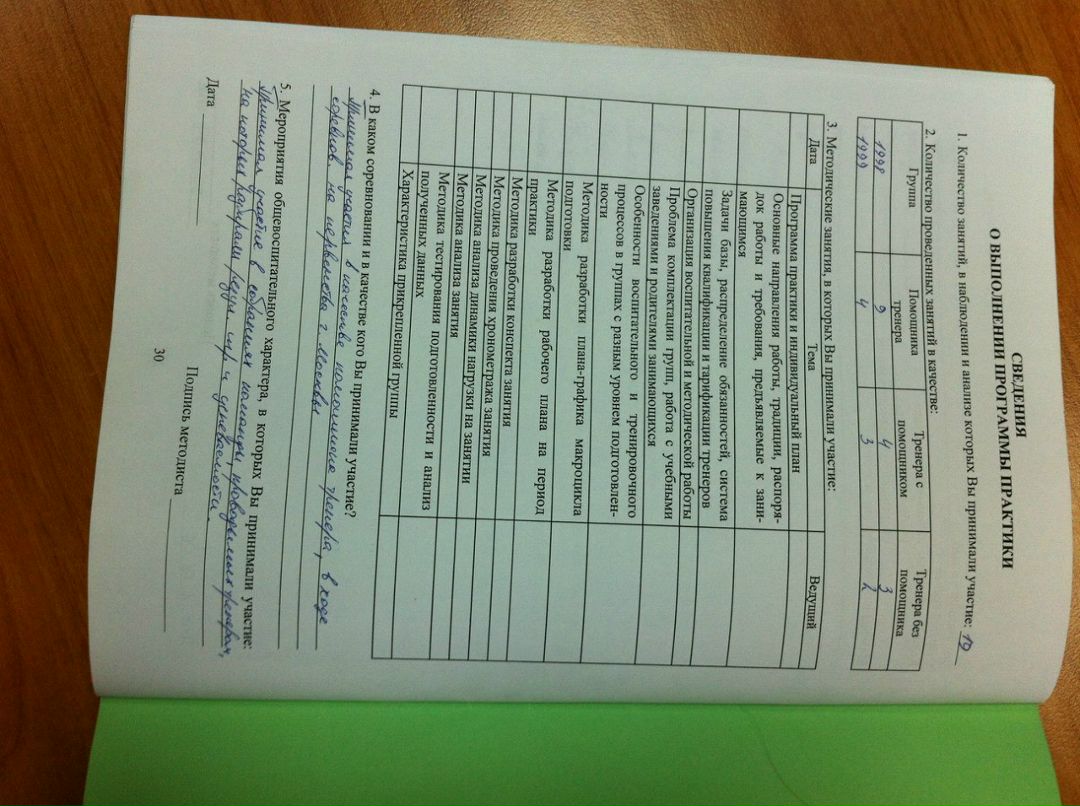 СВЕДЕНИЯ
О ВЫПОЛНЕНИИ ПРОГРАММЫ ПРАКТИКИ
1. Количество занятий, в наблюдении и анализе которых Вы принимали участие: 19
2. Количество проведенных занятий в качестве:
Группа Помощника тренера Тренера с помощником Тренера без помощника
1998 9 4 3
1999 4 3 2
3. Методические занятия, в которых Вы принимали участие:
Дата Тема Ведущий
Программа практики и индивидуальный план
Основные направления работы, традиции, распоря-
док работы и требования, предъявляемые к зани-
мающимся
Задачи базы, распределение обязанностей, система
повышения квалификации и тарификации тренеров
Организация воспитательной и методической работы
Проблема комплектации групп, работа с учебными
заведениями и родителями занимающихся
Особенности воспитательного и тренировочного
процессов в группах с разным уровнем подготовлен-
ности
Методика разработки плана-графика макроцикла
подготовки
Методика разработки рабочего плана на период
практики
Методика разработки конспекта занятия
Методика проведения хронометража занятия
Методика анализа динамики нагрузки на занятии
Методика анализа занятия
Методика тестирования подготовленности и анализ
полученных данных
Характеристика прикрепленной группы
4. В каком соревновании и в качестве кого Вы принимали участие?
Принимал участие в качестве помощника тренера, в ходе
соревнов. на первенство г. Москвы
5. Мероприятия общевоспитательного характера, в которых Вы принимали участие:
Принимал участие в собраниях команды, проводимых тренером,
на которых разбирали игр и успеваемость.
Дата Подпись методиста
30